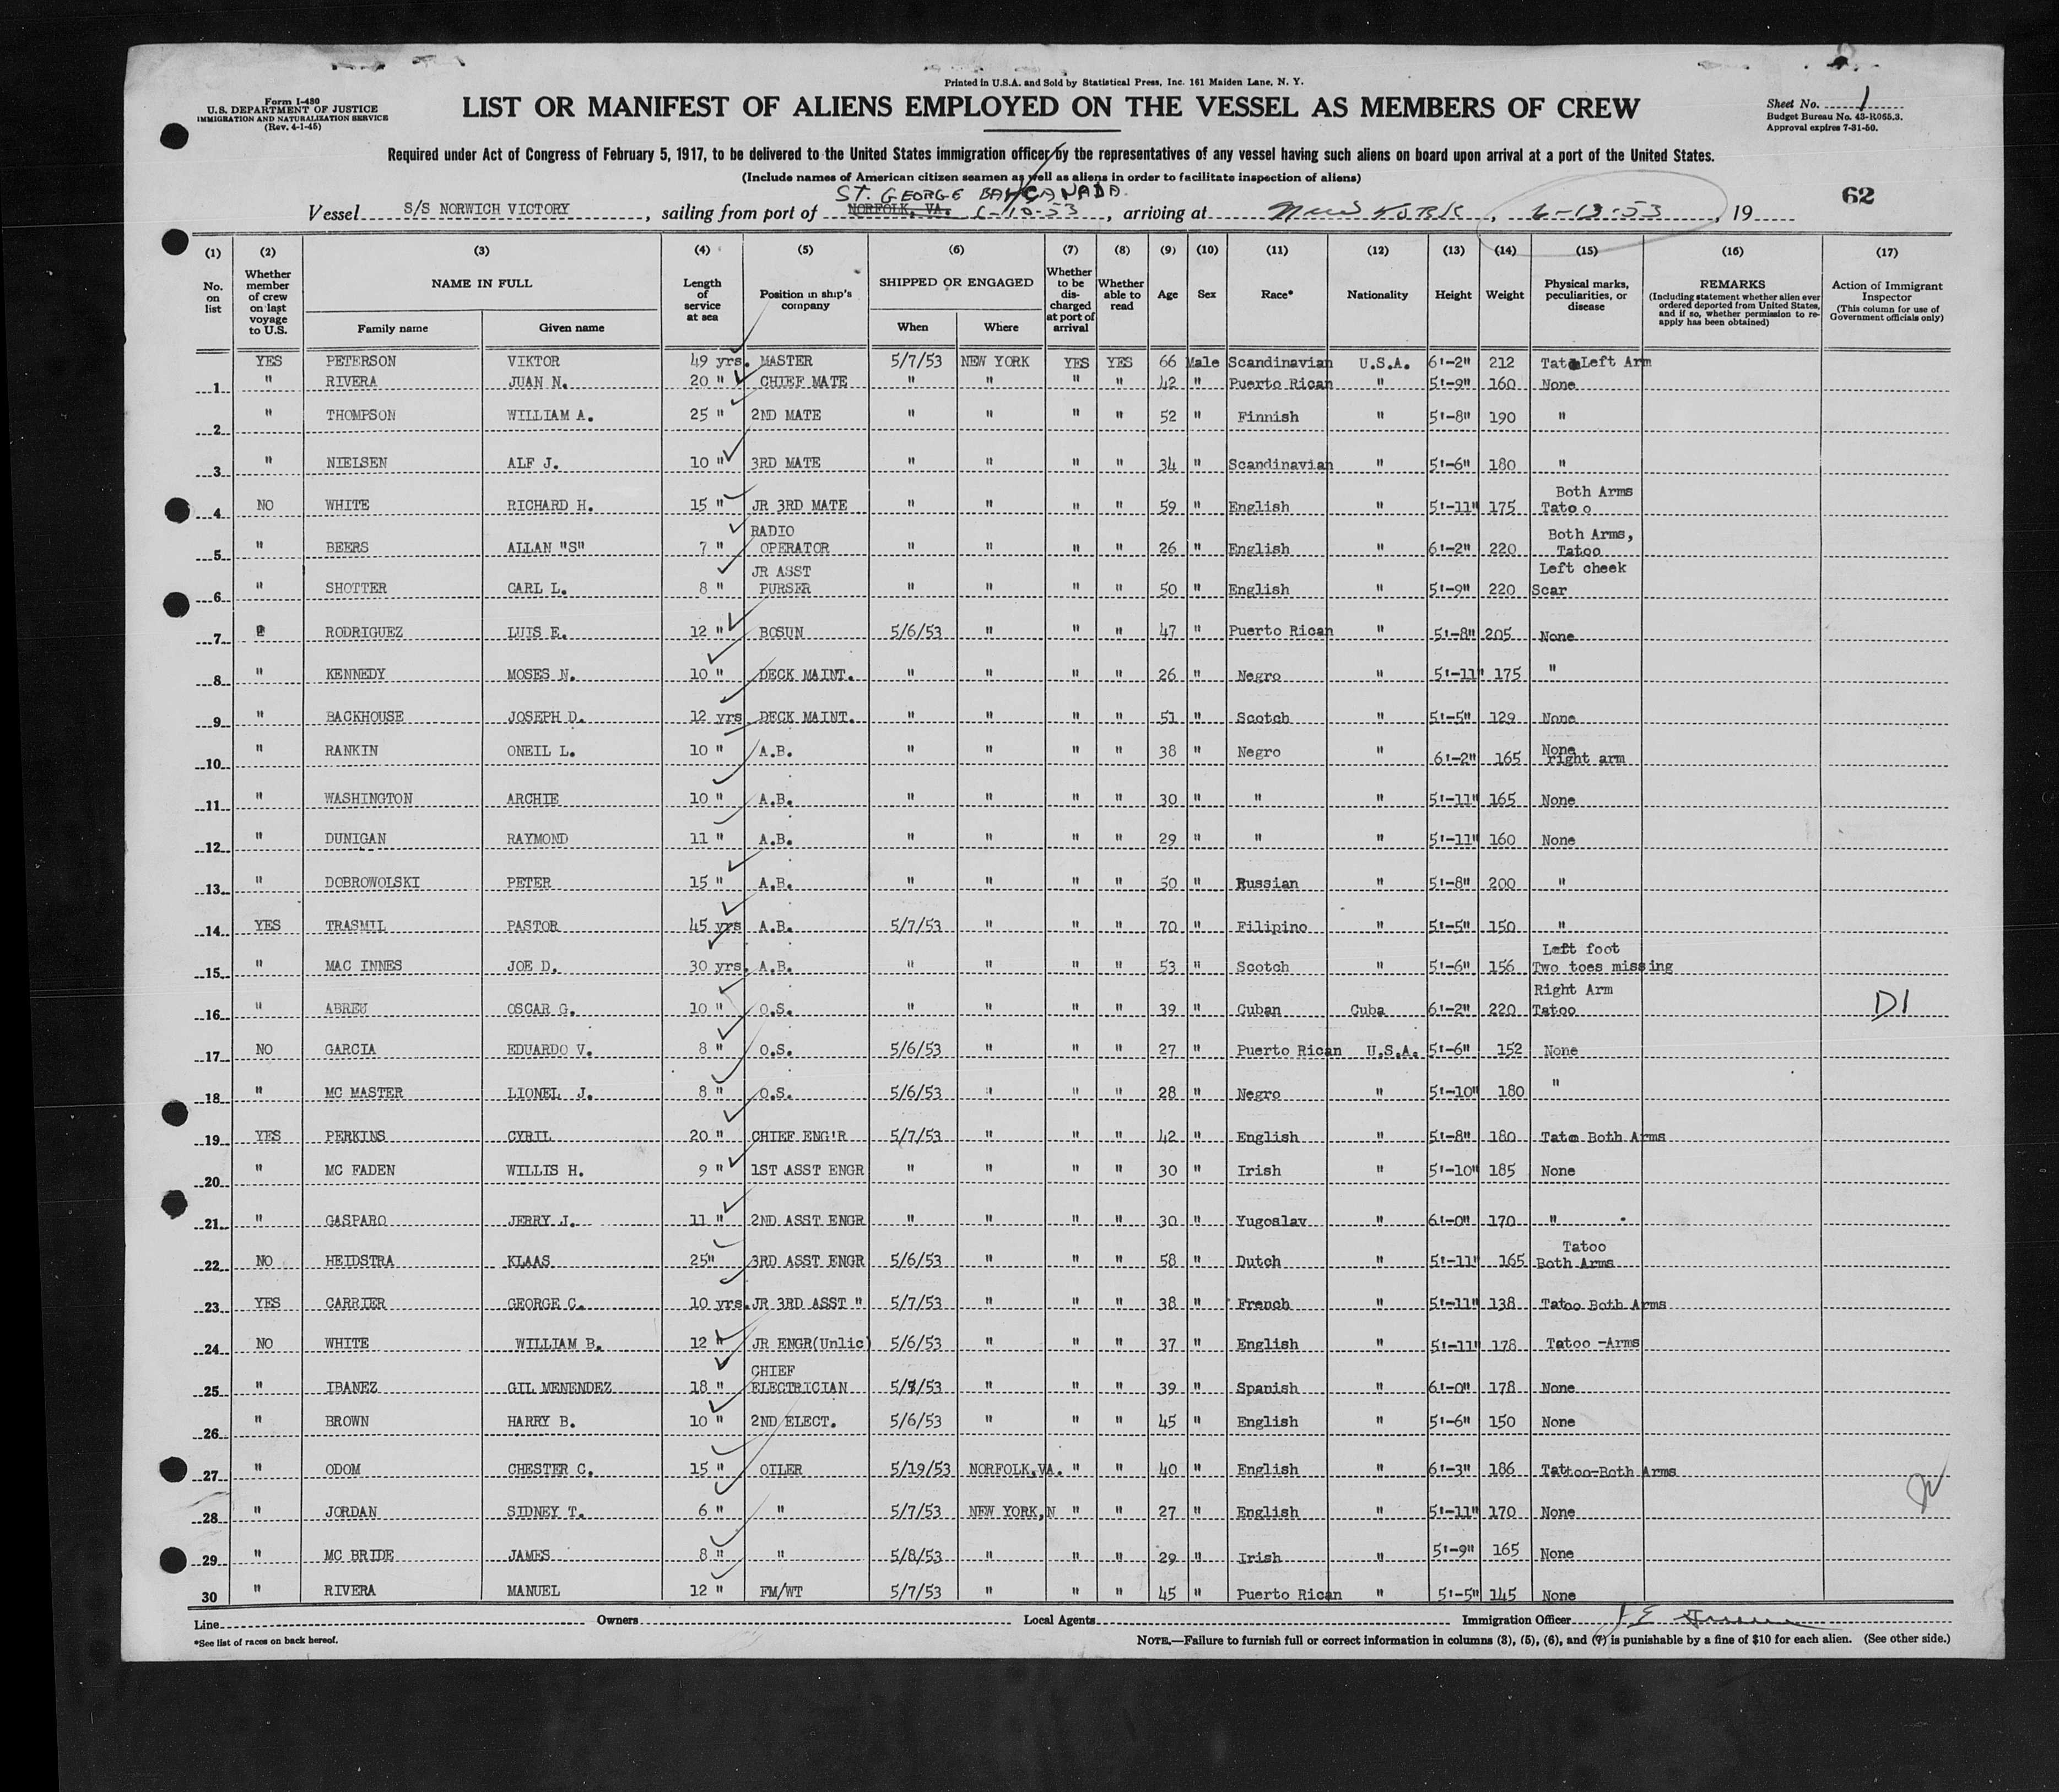 Printed in U.S.A. and Sold by Statistical Press, Inc. 161 Maiden Lane, N. Y.
Form I-480
U.S. DEPARTMENT OF JUSTICE
IMMIGRATION AND NATURALIZATION SERVICE
(Rev. 4-1-45)
LIST OR MANIFEST OF ALIENS EMPLOYED ON THE VESSEL AS MEMBERS OF CREW
Sheet No. 1
Budget Bureau No. 43-R065.3.
Approval expires 7-31-50.
Required under Act of Congress of February 5, 1917, to be delivered to the United States immigration officer by the representatives of any vessel having such aliens on board upon arrival at a port of the United States.
(Include names of American citizen seamen as well as aliens in order to facilitate inspection of aliens)
ST. GEORGE BAY CANADA
62
Vessel S/S NORWICH VICTORY , sailing from port of NORFOLK, VA. 6-10-53 , arriving at New YORK , 6-13-53 , 19
(1) (2) (3) (4) (5) (6) (7) (8) (9) (10) (11) (12) (13) (14) (15) (16) (17)
No. on list
Whether member of crew on last voyage to U.S.
NAME IN FULL
Family name Given name
Length of service at sea
Position in ship's company
SHIPPED OR ENGAGED
When Where
Whether to be discharged at port of arrival
Whether able to read
Age Sex Race* Nationality Height Weight
Physical marks, peculiarities, or disease
REMARKS
(Including statement whether alien ever ordered deported from United States, and if so, whether permission to reapply has been obtained)
Action of Immigrant Inspector
(This column for use of Government officials only)
YES PETERSON VIKTOR 49 yrs. MASTER 5/7/53 NEW YORK YES YES 66 Male Scandinavian U.S.A. 6'-2" 212 Left Arm
1 " RIVERA JUAN N. 20 " CHIEF MATE " " " " 42 " Puerto Rican " 5'-9" 160 None
2 " THOMPSON WILLIAM A. 25 " 2ND MATE " " " " 52 " Finnish " 5'-8" 190 "
3 " NIELSEN ALF J. 10 " 3RD MATE " " " " 34 " Scandinavian " 5'-6" 180 "
4 NO WHITE RICHARD H. 15 " JR 3RD MATE " " " " 59 " English " 5'-11" 175 Both Arms Tatoo
5 " BEERS ALLAN "S" 7 " RADIO OPERATOR " " " " 26 " English " 6'-2" 220 Both Arms, Tatoo
6 " SHOTTER CARL L. 8 " JR ASST PURSER " " " " 50 " English " 5'-9" 220 Left cheek Scar
7 RODRIGUEZ LUIS E. 12 " BOSUN 5/6/53 " " " 47 " Puerto Rican " 5'-8" 205 None
8 " KENNEDY MOSES N. 10 " DECK MAINT. " " " " 26 " Negro " 5'-11" 175 "
9 " BACKHOUSE JOSEPH D. 12 yrs DECK MAINT. " " " " 51 " Scotch " 5'-5" 129 None
10 " RANKIN ONEIL L. 10 " A.B. " " " " 38 " Negro " 6'-2" 165 None right arm
11 " WASHINGTON ARCHIE 10 " A.B. " " " " 30 " " " 5'-11" 165 None
12 " DUNIGAN RAYMOND 11 " A.B. " " " " 29 " " " 5'-11" 160 None
13 " DOBROWOLSKI PETER 15 " A.B. " " " " 50 " Russian " 5'-8" 200 "
14 YES TRASMIL PASTOR 45 yrs A.B. 5/7/53 " " " 70 " Filipino " 5'-5" 150 "
15 " MAC INNES JOE D. 30 yrs. A.B. " " " " 53 " Scotch " 5'-6" 156 Left foot Two toes missing
16 " ABREU OSCAR G. 10 " O.S. " " " " 39 " Cuban Cuba 6'-2" 220 Right Arm Tatoo D1
17 NO GARCIA EDUARDO V. 8 " O.S. 5/6/53 " " " 27 " Puerto Rican U.S.A. 5'-6" 152 None
18 " MC MASTER LIONEL J. 8 " O.S. 5/6/53 " " " 28 " Negro " 5'-10" 180 "
19 YES PERKINS CYRIL 20 " CHIEF ENG'R 5/7/53 " " " 42 " English " 5'-8" 180 Both Arms
20 " MC FADEN WILLIS H. 9 " 1ST ASST ENGR " " " " 30 " Irish " 5'-10" 185 None
21 " GASPARO JERRY J. 11 " 2ND ASST ENGR " " " " 30 " Yugoslav " 6'-0" 170 "
22 NO HEIDSTRA KLAAS 25" 3RD ASST ENGR 5/6/53 " " " 58 " Dutch " 5'-11" 165 Tatoo Both Arms
23 YES CARRIER GEORGE C. 10 yrs. JR 3RD ASST " 5/7/53 " " " 38 " French " 5'-11" 138 Tatoo Both Arms
24 NO WHITE WILLIAM B. 12 " JR ENGR(Unlic) 5/6/53 " " " 37 " English " 5'-11" 178 Tatoo -Arms
25 " IBANEZ GIL MENENDEZ 18 " CHIEF ELECTRICIAN 5/7/53 " " " 39 " Spanish " 6'-0" 178 None
26 " BROWN HARRY B. 10 " 2ND ELECT. 5/6/53 " " " 45 " English " 5'-6" 150 None
27 " ODOM CHESTER C. 15 " OILER 5/19/53 NORFOLK,VA. " " 40 " English " 6'-3" 186 Tattoo-Both Arms
28 " JORDAN SIDNEY T. 6 " " 5/7/53 NEW YORK,N " " 27 " English " 5'-11" 170 None
29 " MC BRIDE JAMES 8 " " 5/8/53 " " " 29 " Irish " 5'-9" 165 None
30 " RIVERA MANUEL 12 " FM/WT 5/7/53 " " " 45 " Puerto Rican " 5'-5" 145 None
Line Owners Local Agents Immigration Officer
*See list of races on back hereof.
NOTE.—Failure to furnish full or correct information in columns (3), (5), (6), and (7) is punishable by a fine of $10 for each alien. (See other side.)